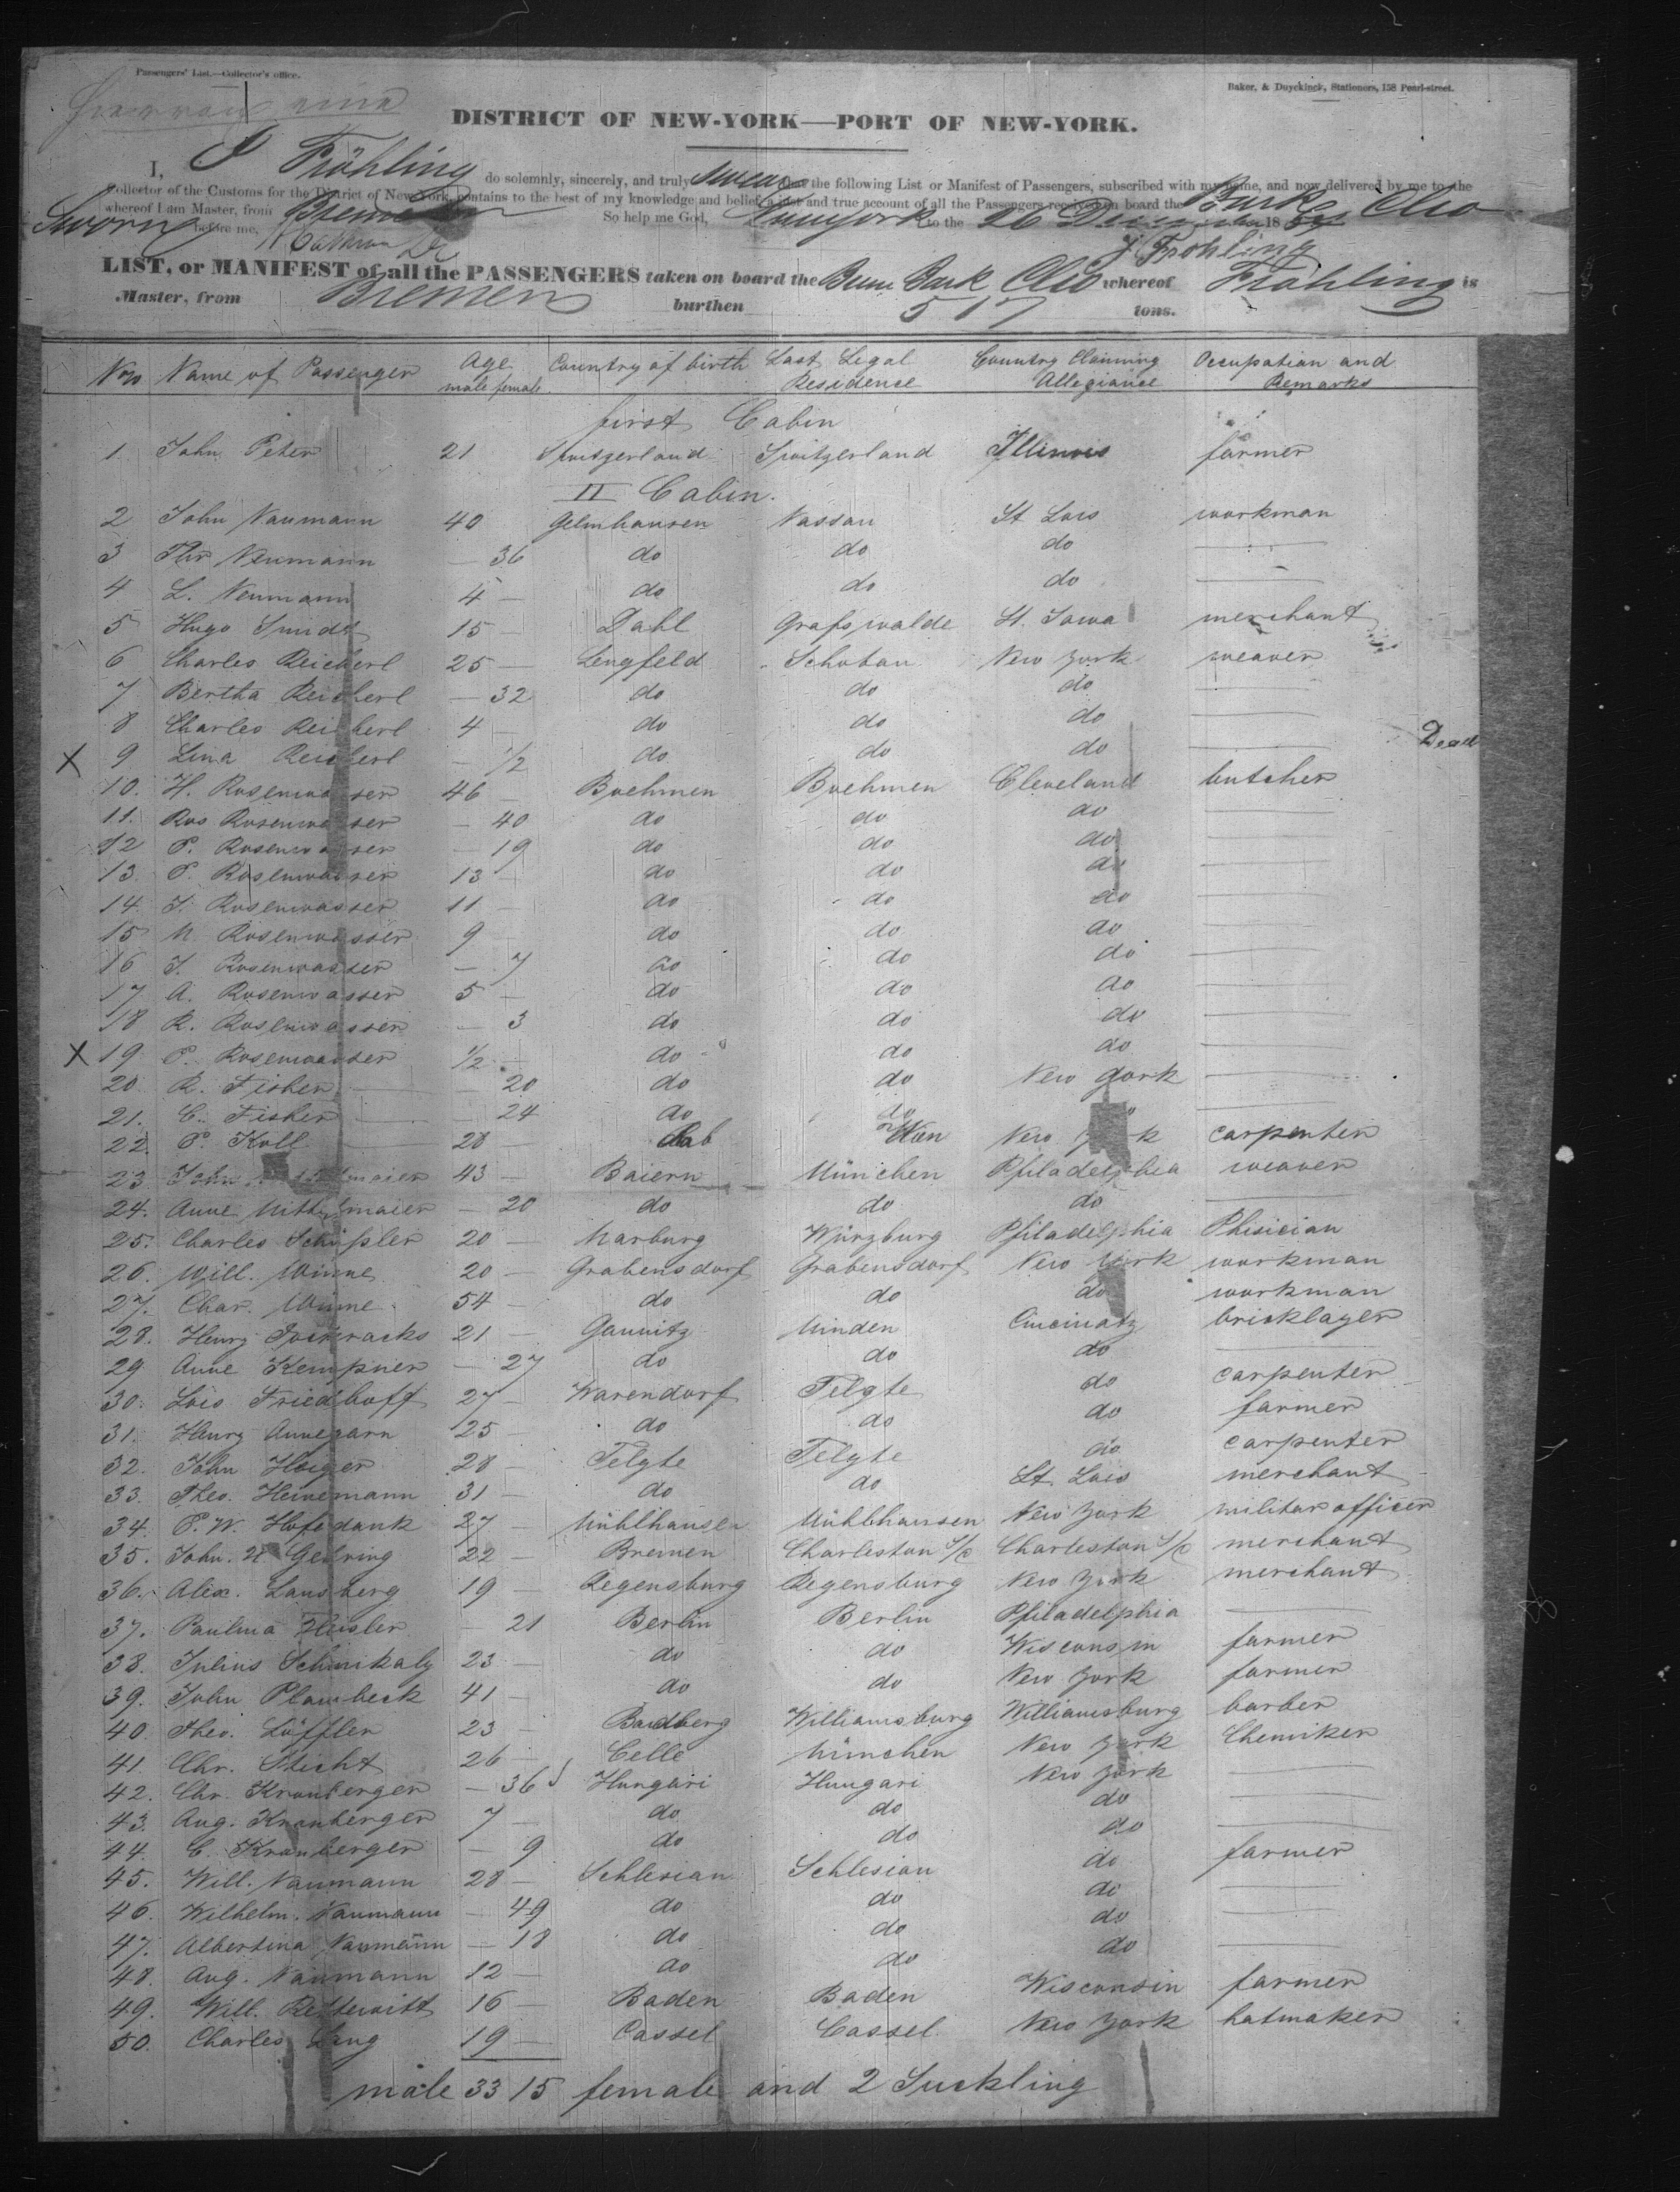 Passengers' List.—Collector's office.
Baker, & Duyckinck, Stationers, 158 Pearl-street.
DISTRICT OF NEW-YORK—PORT OF NEW-YORK.
I, J Fröhling do solemnly, sincerely, and truly swear that the following List or Manifest of Passengers, subscribed with my name, and now delivered by me to the
Collector of the Customs for the District of New York, contains to the best of my knowledge and belief, a just and true account of all the Passengers received on board the Bark Clio
whereof I am Master, from Bremen So help me God, Newyork to the 26 18
Sworn before me,
J. Fröhling
LIST, or MANIFEST of all the PASSENGERS taken on board the Brem Bark Clio whereof Fröhling is
Master, from Bremen burthen 517 tons.
Nro Name of Passenger Age Country of birth Last Legal Country Claiming Occupation and
male female Residence Allegiance Remarks
first Cabin
1 John Peter 21 Switzerland Switzerland Illinois farmer
II Cabin.
2 John Naumann 40 Gelnhausen Nassau St Lois workman
3 Neumann — 36 do do do —
4 L. Neumann 4 — do do do —
5 Hugo Smidt 15 — Dahl Grafswalde St. Iowa merchant
6 Charles Reicherl 25 — Lengfeld Schobau New York weaver
7 Bertha Reicherl — 32 do do do —
8 Charles Reicherl 4 — do do do —
X 9 Lina Reicherl — 1/2 do do do — Dead
10. H. Rosenwasser 46 — Boehmen Boehmen Cleveland butcher
11. Ros Rosenwasser — 40 do do do —
12 P. Rosenwasser — 19 do do do —
13. P. Rosenwasser 13 — do do do —
14. I. Rosenwasser 11 — do do do —
15 M. Rosenwasser 9 — do do do —
16 I. Rosenwasser — 7 do do do —
17 A. Rosenwasser 5 — do do do —
18 R. Rosenwasser — 3 do do do —
X 19 P. Rosenwasser 1/2 — do do do —
20. R. Fisher — 20 do do New York —
21. C. Fisher — 24 do do " —
22. P. Koll 28 — Wien New York carpenter
23. John 43 — Baiern München Pfiladelphia weaver
24. Anne Mittelmaier — 20 do do do —
25. Charles Schüssler 20 — Marburg Würzburg Pfiladelphia Phisician
26. Will. Winne 20 — Grabensdorf Grabensdorf New York workman
27. Char. Winne 54 — do do do workman
28. Henry 21 — Gaunitz Minden Cincinatz bricklayer
29 Anne Kempner — 27 do do do —
30. Lois Friedhoff 27 — Warendorf Telgte do carpenter
31. Henry Annegarn 25 — do do do farmer
32. John Hoiger 28 — Telgte Telgte do carpenter
33. Theo. Heinemann 31 — do do St. Lois merchant
34. P. W. Hofedank 27 — Mühlhausen Mühlhausen New York militar officer
35. John. H Gehring 22 — Bremen Charleston S/C Charleston S/C merchant
36. Alex. Lansberg 19 — Regensburg Regensburg New York merchant
37. Paulina Heisler — 21 Berlin Berlin Pfiladelphia —
38. Julius Schmikaly 23 — do do Wisconsin farmer
39. John Plambeck 41 — do do New York farmer
40. Theo. Löffler 23 — Williamsburg Williamsburg barber
41. Chr. Sticht 26 — Celle München New York Chemiker
42. Chr. Kronberger — 36 Hungari Hungari New York —
43. Aug. Kronberger 7 — do do do —
44. C. Kronberger — 9 do do do —
45. Will. Naumann 28 — Schlesian Schlesian do farmer
46. Wilhelm. Naumann — 49 do do do —
47. Albertina Naumann — 18 do do do —
48. Aug. Naumann 12 — do do do —
49. Will. Rettewitt 16 — Baden Baden Wisconsin farmer
50. Charles Lang 19 — Cassel Cassel New York hatmaker
male 33 15 female and 2 Suckling